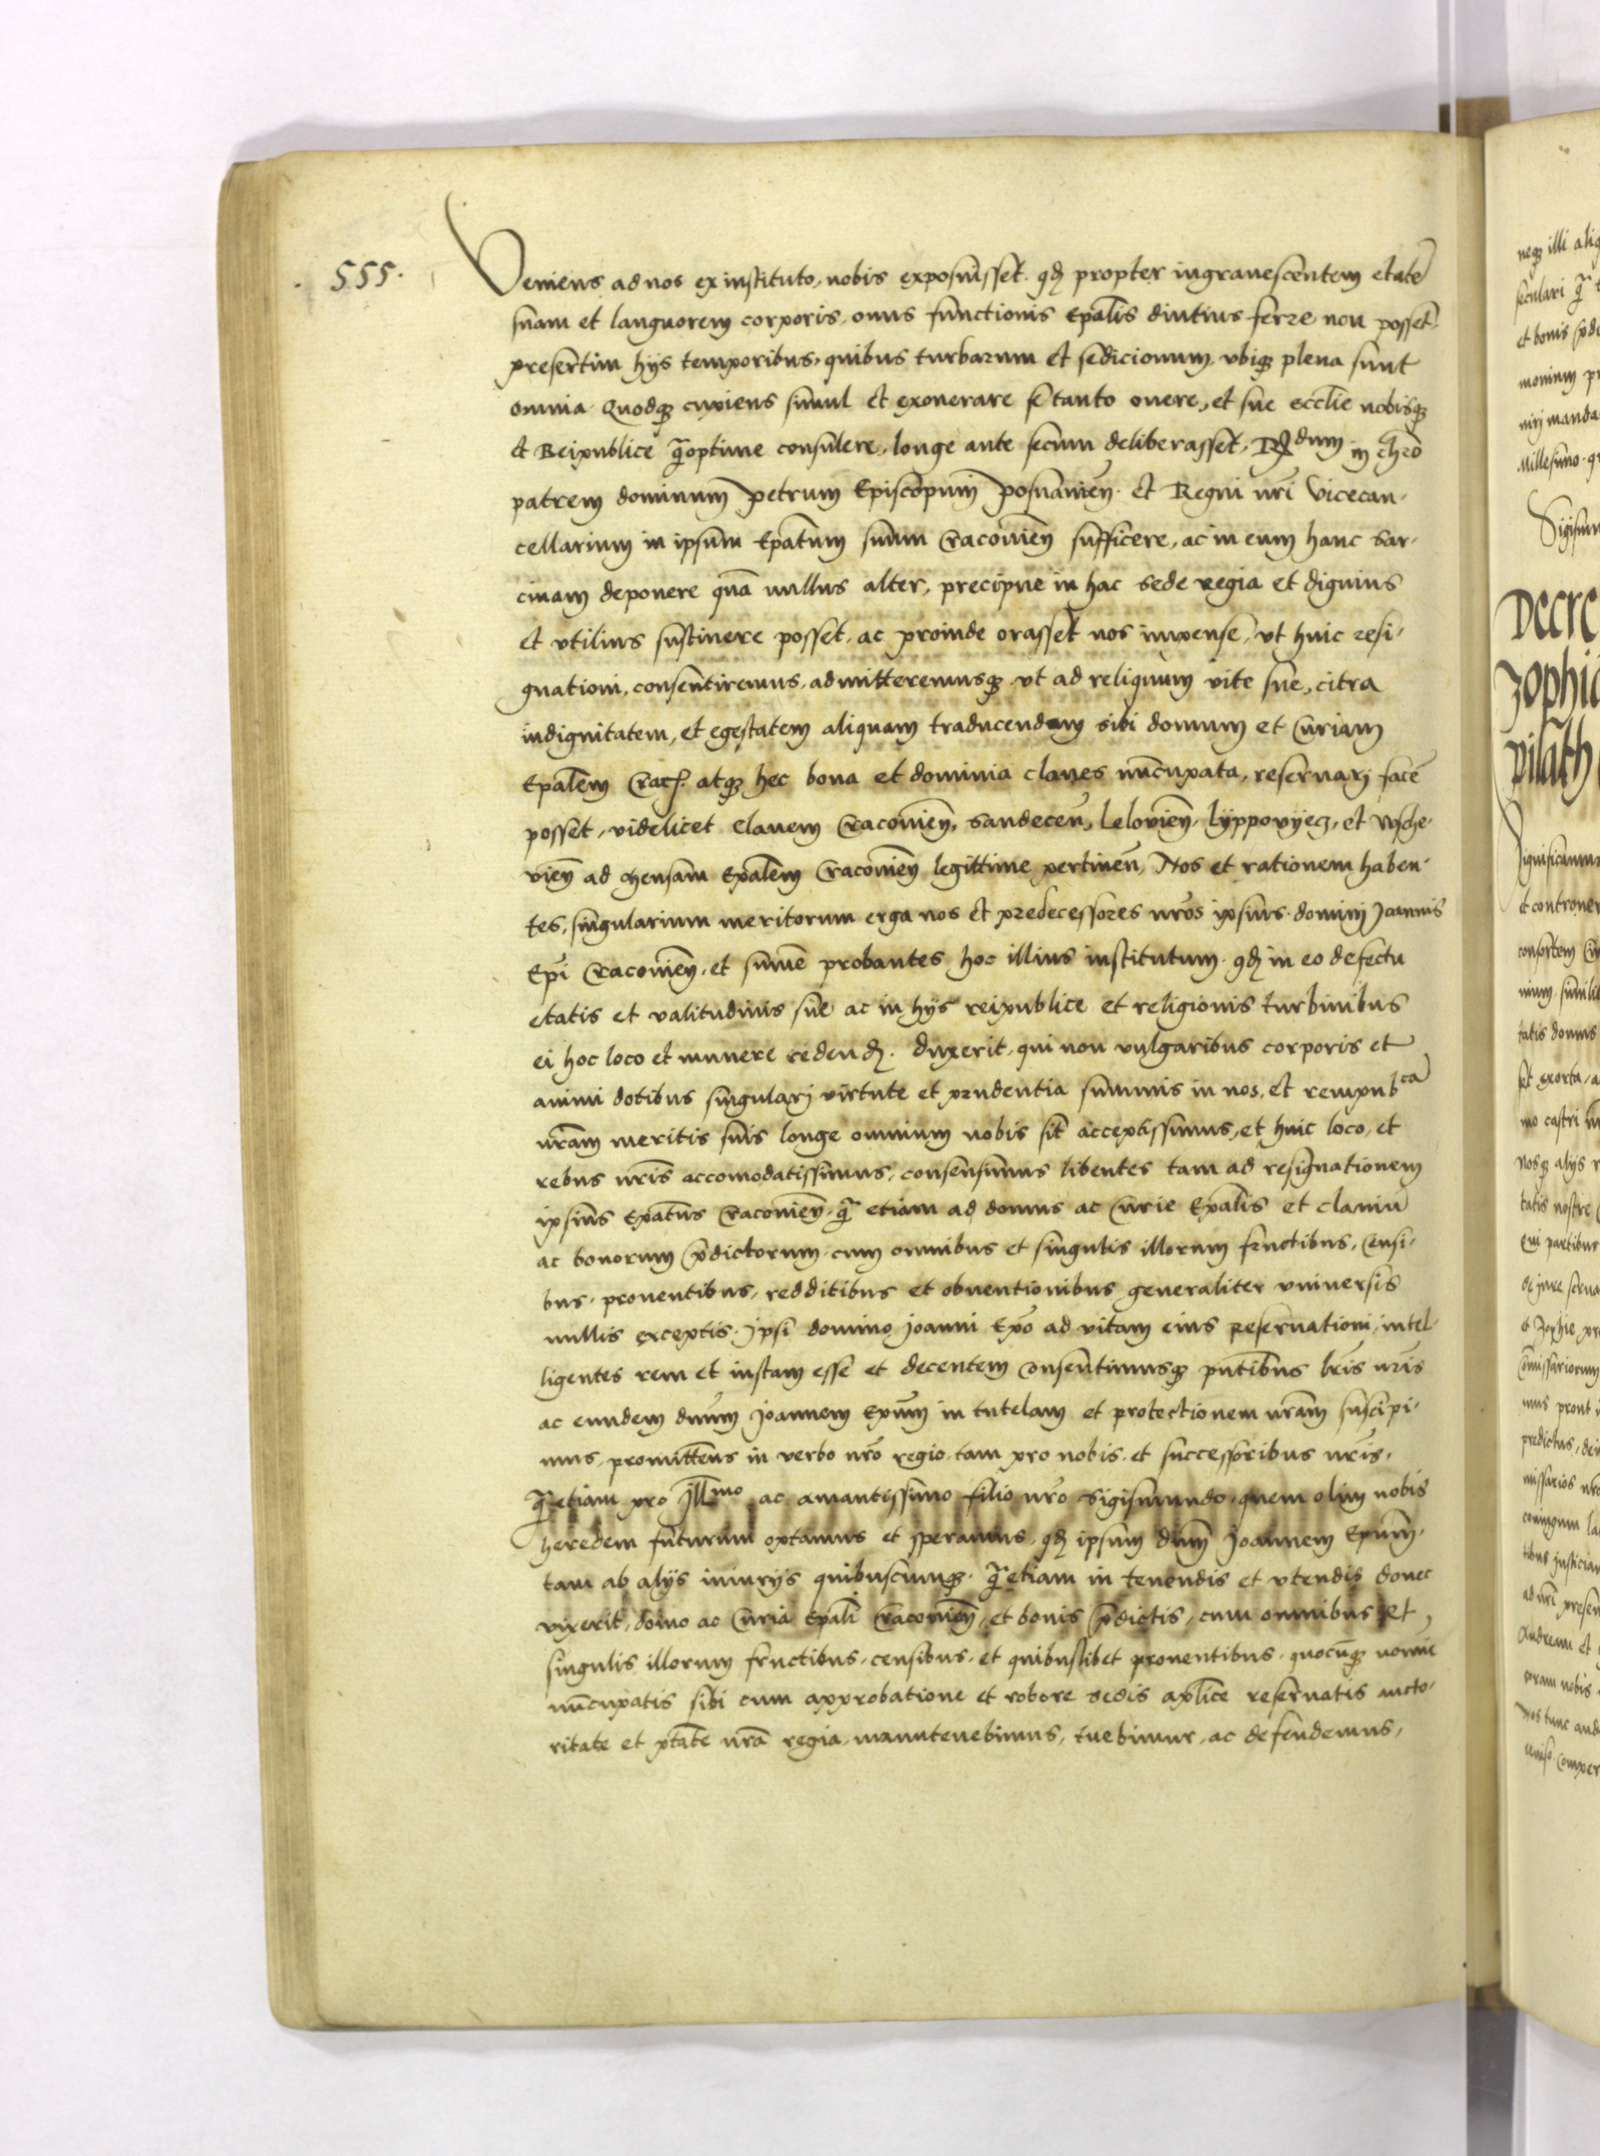 555.
Veniens ad nos ex instituto, nobis exposuisset. qd propter ingravescentem etatē
suam et languorem corporis, onus functionis Epālis diutius ferre non posset,
presertim hijs temporibus, quibus turbarum et sedicionum, ubiqȝ plena sunt
omnia. Quodqȝ cupiens simul et exonerare se tanto onere, et sue eccl̄ie nobisqȝ
et Reipublice q̄optime consulere, longe ante secum deliberasset, Rdum in chrō
patrem dominum petrum Episcopum posnanien̄. et Regni nrī vicecan-
cellarium in ipsum Epatum suum Cracovien̄ sufficere, ac in eum hanc sar-
cinam deponere quā nullus alter, precipue in hac sede regia et dignius
et utilius sustinere posset, ac proinde orasset nos impense, ut huic resi-
gnationi, consentiremus, admitteremusqȝ ut ad reliquum vite sue, citra
indignitatem, et egestatem aliquam traducendam sibi domum et Curiam
Epālem Crac. atqȝ hec bona et dominia claves nūcupata, reservari facē
posset, videlicet Clavem Cracovien̄, Sandecen̄, Lelovien̄, lyppovyecz, et
vien̄ ad mensam Epālem Cracovien̄ legittime pertinen̄, Nos et rationem haben-
tes, singularium meritorum erga nos et predecessores nrōs ipsius domini Joannis
Epī Cracovien̄, et summē probantes hoc illius institutum. qd in eo defectu
etatis et valitudinis sue ac in hijs reipublice et religionis turbinibus
ei hoc loco et munere cedend. duxerit, qui non vulgaribus corporis et
animi dotibus singulari virtute et prudentia summis in nos, et rempubcā
nrām meritis suis longe omnium nobis sit acceptissimus, et huic loco, et
rebus nrīs accomodatissimus, consensimus libentes tam ad resignationem
ipsius Epatus Cracovien̄, q̄ etiam ad domus ac Curie Epālis et claviū
ac bonorum p̄dictorum cum omnibus et singulis illorum fructibus, Censi-
bus, proventibus, redditibus et obventionibus generaliter universis
nullis exceptis. Ipsi domino Joanni Epō ad vitam eius reservationi, intel-
ligentes rem et iustam esse et decentem Consentimusqȝ pn̄tibus lrīs nrīs
ac eundem dnūm Joannem Epūm in tutelam et protectionem nrām suscipi-
mus, promittens in verbo nrō regio, tam pro nobis et successoribus nrīs,
q̄ etiam pro Illmo ac amantissimo filio nrō Sigismundo, quem olim nobis
heredem futurum optamus et speramus, qd ipsum dnm̄ Joannem Epūm,
tam ab alijs iniurijs quibuscunqȝ. q̄ etiam in tenendis et utendis donec
vixerit, domo ac Curia Epāli Cracovien̄, et bonis p̄dictis, cum omnibus et
singulis illorum fructibus, censibus, et quibuslibet proventibus, quocūqȝ nomīe
nūcupatis sibi cum approbatione et robore sedis aplīce reservatis aucto-
ritate et ptātē nrā regia, manutenebimus, tuebimur, ac defendemus,